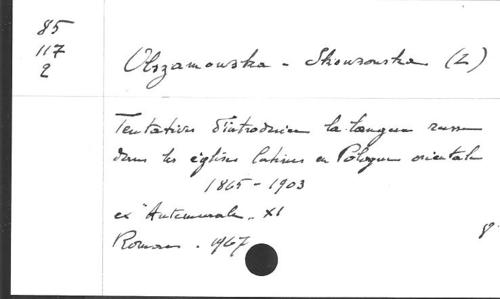 85
117
2
Olszamowska - Skowronska (Z)
Tentatives d'introduire la langue russe
dans les églises latines en Pologne orientale
1865-1903
ex "Antemurale" XI
Romae. 1967
8°